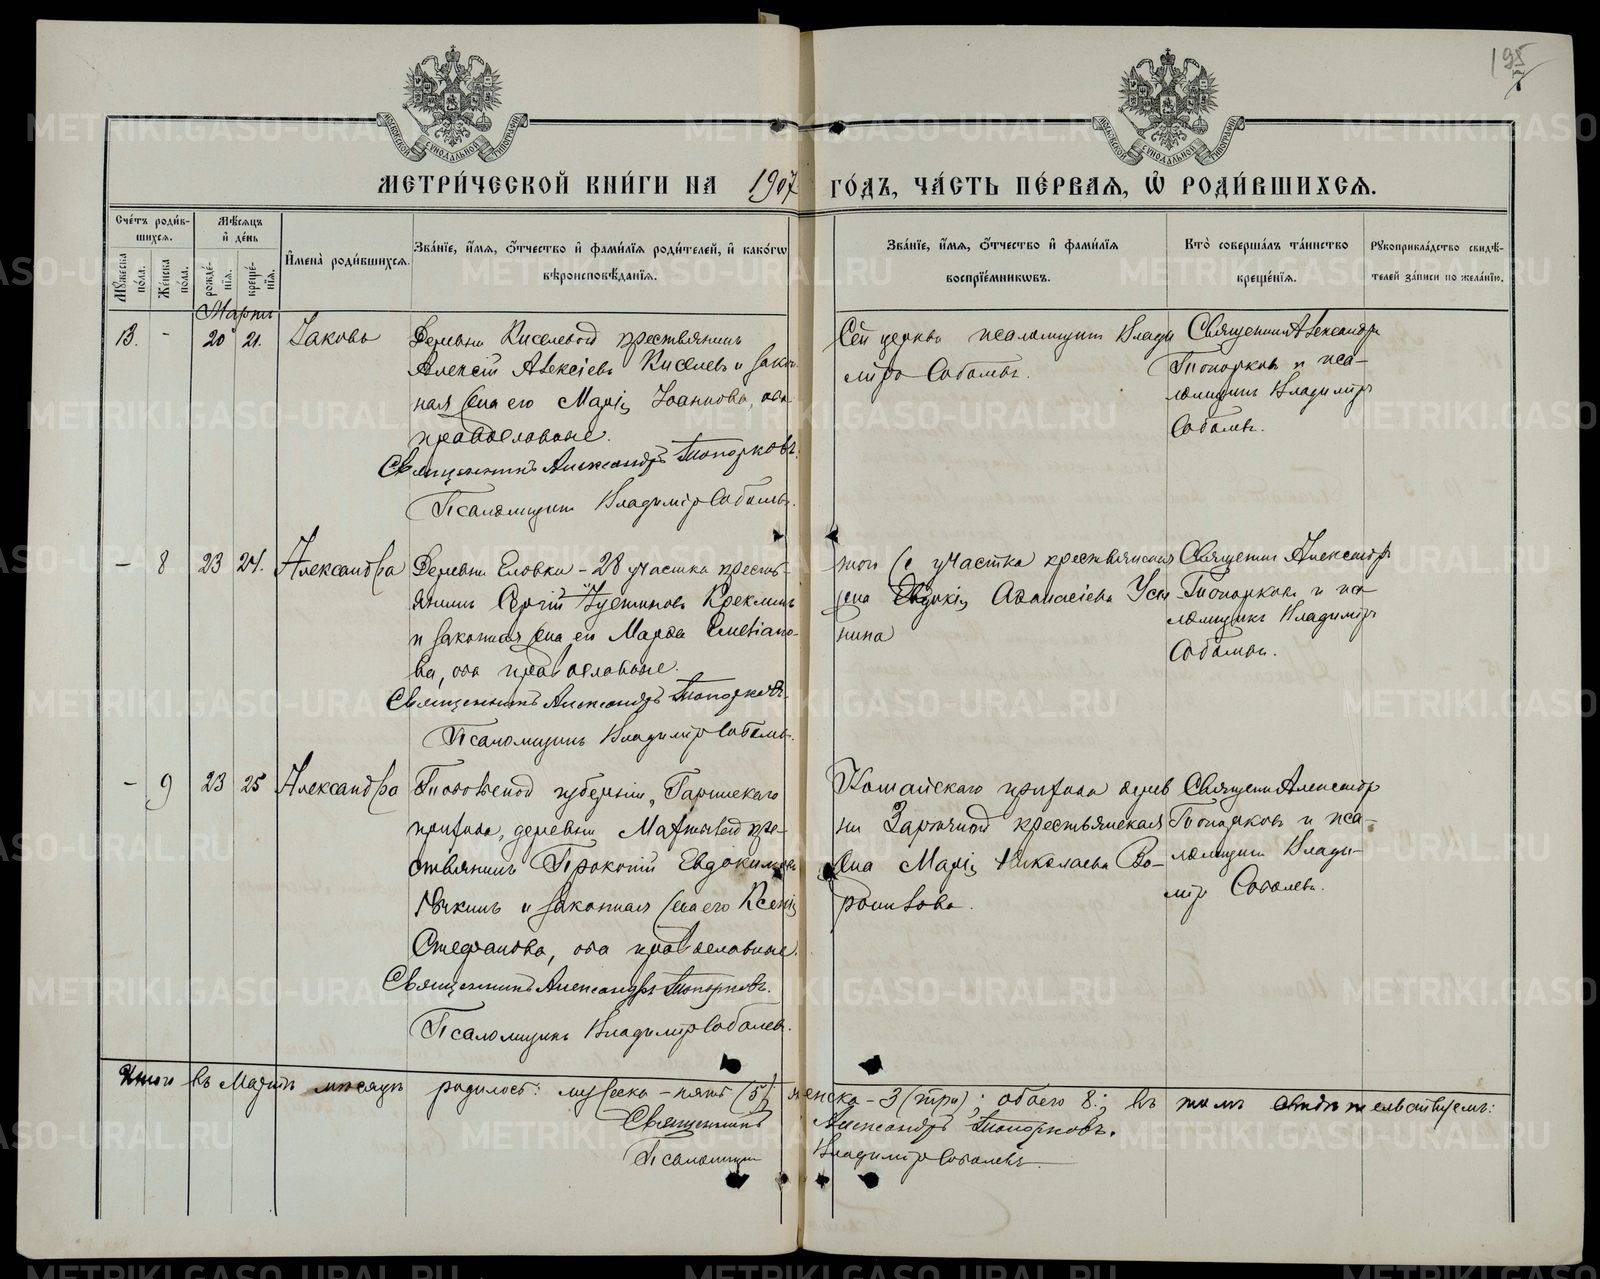 195
7
МОСКОВСКОЙ СѴНОДАЛЬНОЙ ТИПОГРАФІИ
МОСКОВСКОЙ СѴНОДАЛЬНОЙ ТИПОГРАФІИ
МЕТРИ́ЧЕСКОЙ КНИ́ГИ НА 1907 ГО́ДЪ, ЧА́СТЬ ПЕ́РВАЯ, Ѽ РОДИ́ВШИХСЯ.
Сче́тъ роди́в-
шихся.
Мꙋ́жеска по́ла.
Же́нска по́ла.
Мѣ́сяцъ
и҆ де́нь
рожде́-
нїя.
креще́-
нїя.
И҆мена̀ роди́вшихся.
Зва́нїе, и҆́мя, ѻ҆́тчество и҆ фами́лїя роди́телей, и҆ како́гѡ
вѣроисповѣ́данїя.
Зва́нїе, и҆́мя, ѻ҆́тчество и҆ фами́лїя
воспрїе́мниковъ.
Кто̀ соверша́лъ та́инство
креще́нїя.
Рꙋкоприкла́дство свидѣ́-
телей за́писи по жела́нїю.
Мартъ
13. - 20 21. Іаковъ
Деревни Киселевой крестьянинъ
Алексій Алексіевъ Киселевъ и закон
ная жена его Марія Іоаннова, оба
православные.
Священникъ Александръ Топорковъ.
Псаломщикъ Владиміръ Соболевъ.
Сей церкви псаломщикъ Влади
міръ Соболевъ.
Священникъ Александръ
Топорковъ и пса-
ломщикъ Владиміръ
Соболевъ.
- 8 23 24. Александра
Деревни Еловки - 28 участка кресть-
янинъ Сергій Іустиновъ Креклинъ
и законная жена его Марѳа Емеліано-
ва, оба православные.
Священникъ Александръ Топорковъ.
Псаломщикъ Владиміръ Соболевъ.
того же участка крестьянская
жена Евдокія Аѳанасіева Усти
нина
Священникъ Александръ
Топорковъ и пса
ломщикъ Владиміръ
Соболевъ.
- 9 23 25 Александра
Тобольской губерніи, Гаринскаго
прихода, деревни кре-
стьянинъ Прокопій Евдокимовъ
и законная жена его Ксенія
Стефанова, оба православные.
Священникъ Александръ Топорковъ.
Псаломщикъ Владиміръ Соболевъ.
Кошайскаго прихода дерев
ни Заречной крестьянская
жена Марія Николаева Во-
ронкова.
Священникъ Александръ
Топорковъ и пса-
ломщикъ Влади-
міръ Соболевъ.
Итого въ Мартѣ мѣсяцѣ родилось: мужеска - пять (5), женска - 3 (три); обоего 8.; въ томъ свидѣтельствуемъ:
Священникъ Александръ Топорковъ.
Псаломщикъ Владиміръ Соболевъ.
METRIKI.GASO-URAL.RU